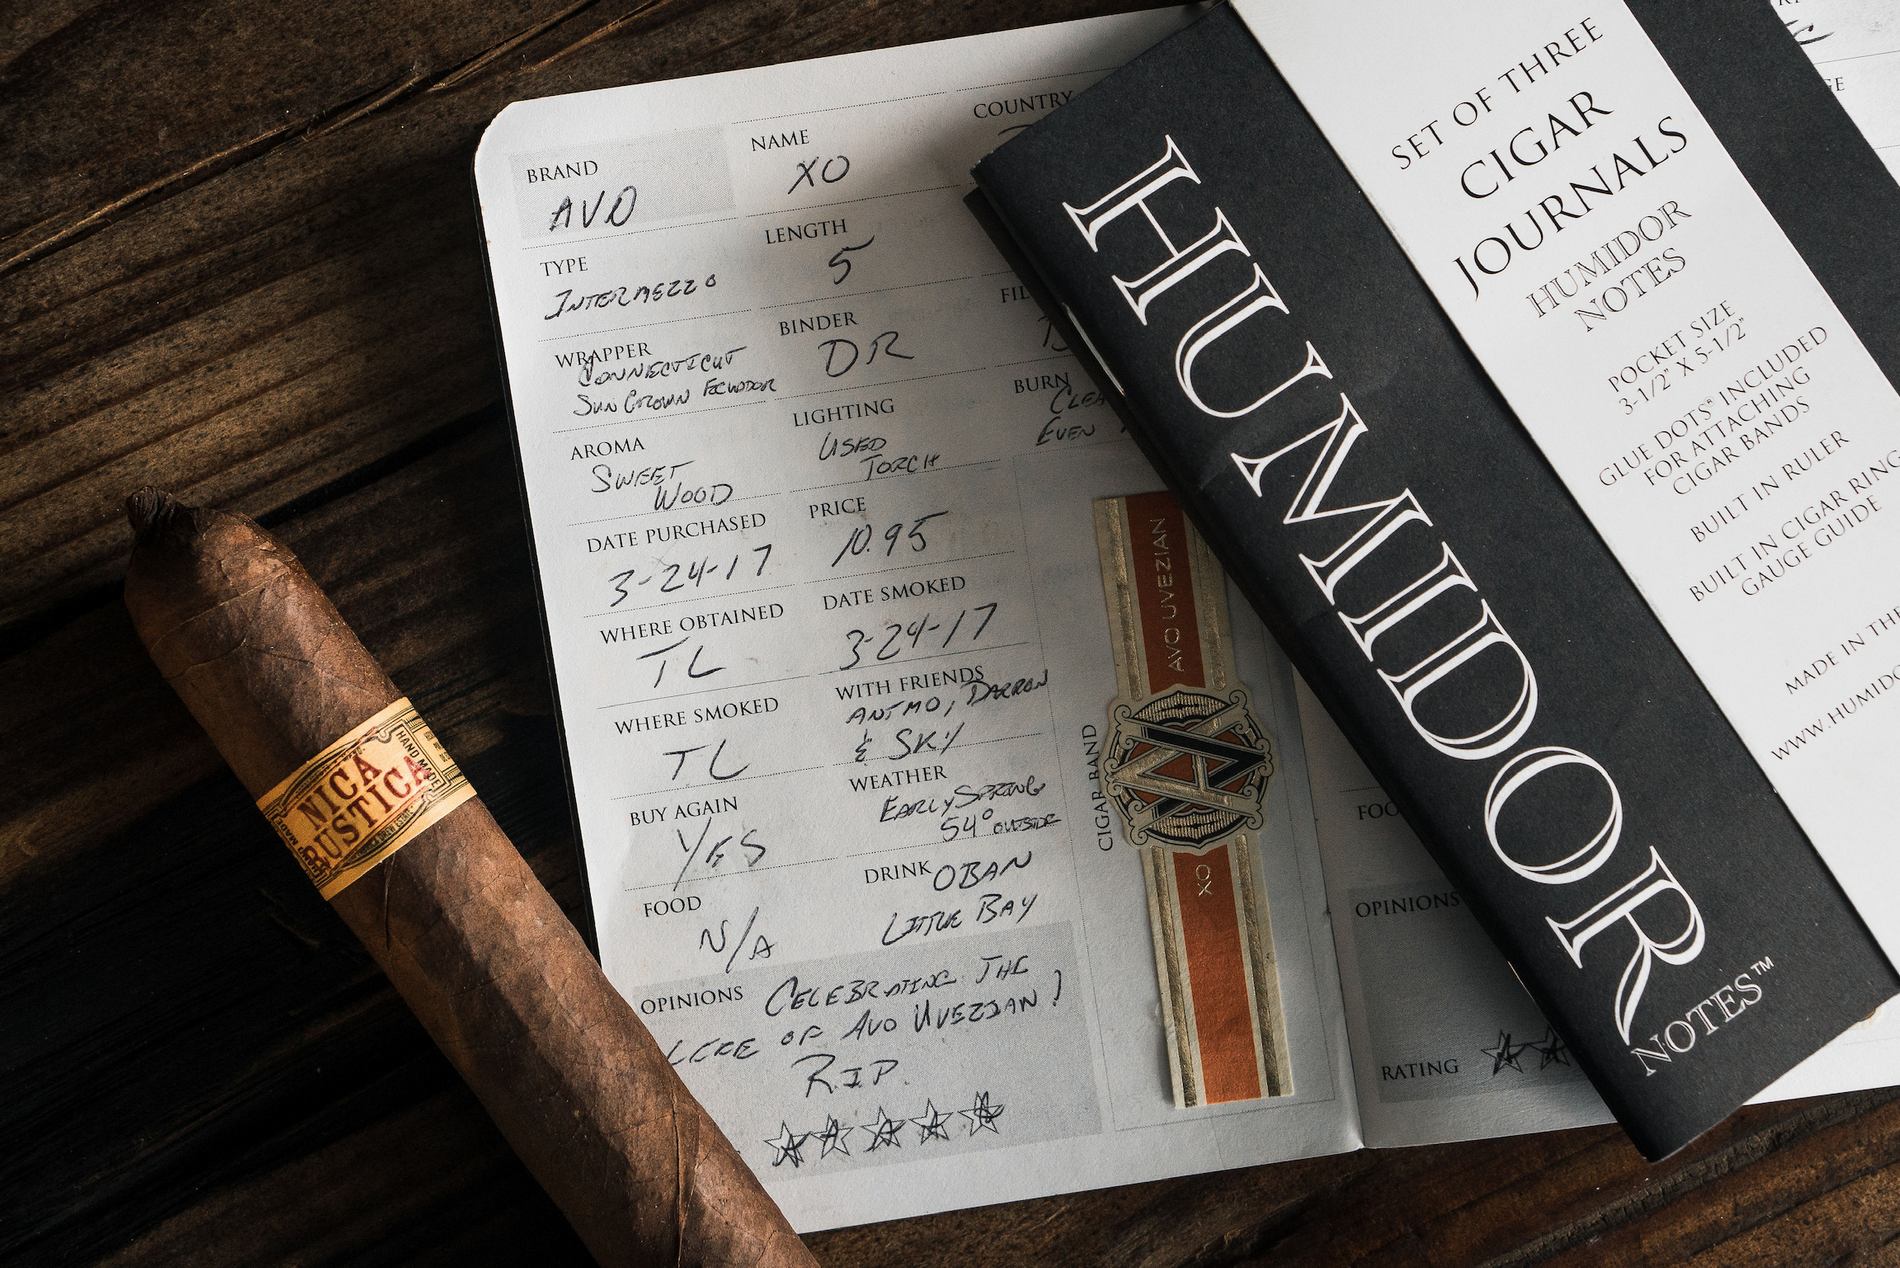 BRAND
AVO
NAME
XO
COUNTRY
TYPE
INTERMEZZO
LENGTH
5
WRAPPER
CONNECTICUT
SUN GROWN ECUADOR
BINDER
DR
AROMA
SWEET
WOOD
LIGHTING
USED
TORCH
BURN
EVEN
DATE PURCHASED
3-24-17
PRICE
10.95
WHERE OBTAINED
TL
DATE SMOKED
3-24-17
WHERE SMOKED
TL
WITH FRIENDS
DARRON
& SKY
BUY AGAIN
YES
WEATHER
EARLY SPRING
54° OUTSIDE
FOOD
N/A
DRINK OBAN
LITTLE BAY
OPINIONS CELEBRATING THE
LIFE OF AVO UVEZIAN!
R.I.P.
CIGAR BAND
AVO UVEZIAN
XO
OPINIONS
RATING
NICA
RUSTICA
HAND MADE
HUMIDOR
NOTES™
SET OF THREE
CIGAR
JOURNALS
HUMIDOR
NOTES
POCKET SIZE
3-1/2" X 5-1/2"
GLUE DOTS® INCLUDED
FOR ATTACHING
CIGAR BANDS
BUILT IN RULER
BUILT IN CIGAR RING
GAUGE GUIDE
MADE IN THE
WWW.HUMIDO